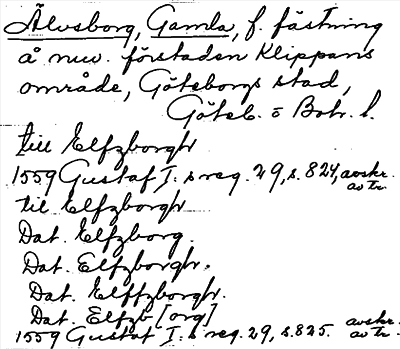 Älvsborg, Gamla, f. fästning
å nuv. förstaden Klippans
område, Göteborgs stad,
Göteb. o Boh. l.
till Elfzborghr
1559 Gustaf I. s reg. 29, s. 824, avskr.
av tr.
til Elfzborghr
Dat. Elfzborg.
Dat. Elfzborghr.
Dat. Elffzborghr.
Dat. Elfzb [org]
1559 Gustaf I. s reg. 29, s. 825. avskr.
av tr.